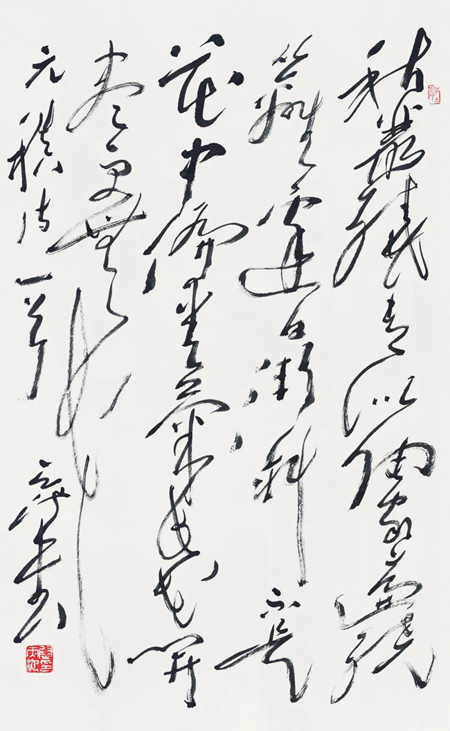 秋叢繞舍似陶家遍繞
籬邊日漸斜不是
花中偏愛菊此花開
盡更無花
元稹詩一首